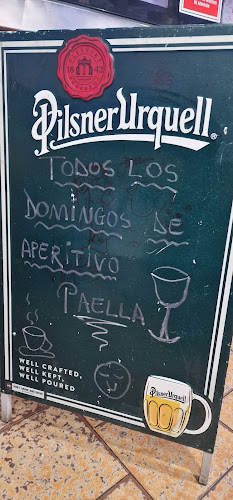 1842
Pilsner Urquell
TODOS LOS
DOMINGOS DE
APERITIVO
PAELLA
WELL CRAFTED,
WELL KEPT,
WELL POURED
Pilsner Urquell